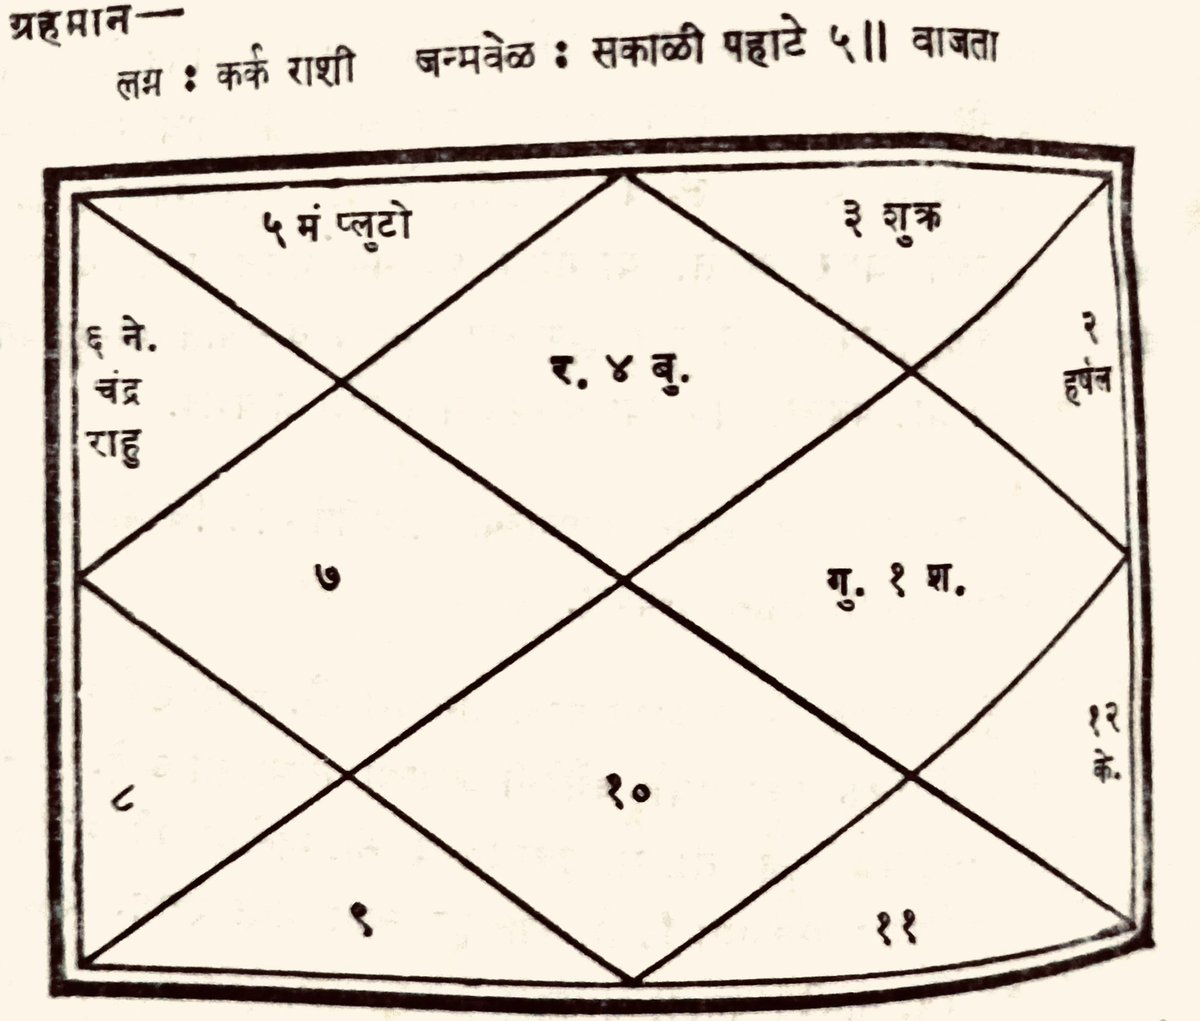 ग्रहमान—
लग्न : कर्क राशी जन्मवेळ : सकाळी पहाटे ५॥ वाजता
५ मं प्लुटो
३ शुक्र
६ ने.
चंद्र
राहु
र. ४ बु.
२
हर्षल
७
गु. १ श.
८
१०
१२
के.
९
११